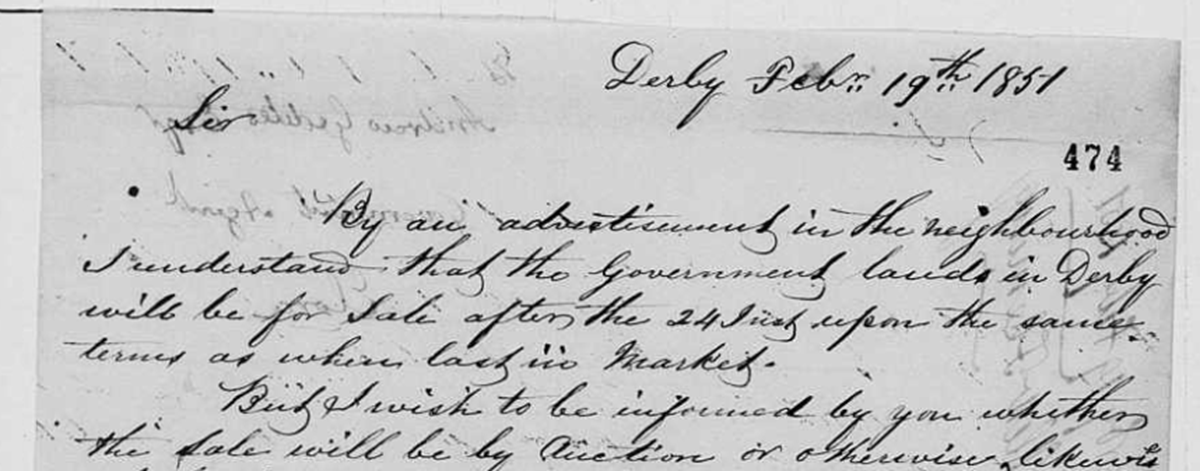 Derby Febr 19th 1851
Sir
474
By an advertisement in the neighbourhood
I understand that the Government lands in Derby
will be for Sale after the 24 Inst upon the same
terms as when last in Market.
But I wish to be informed by you whether
the Sale will be by Auction or otherwise, likewise